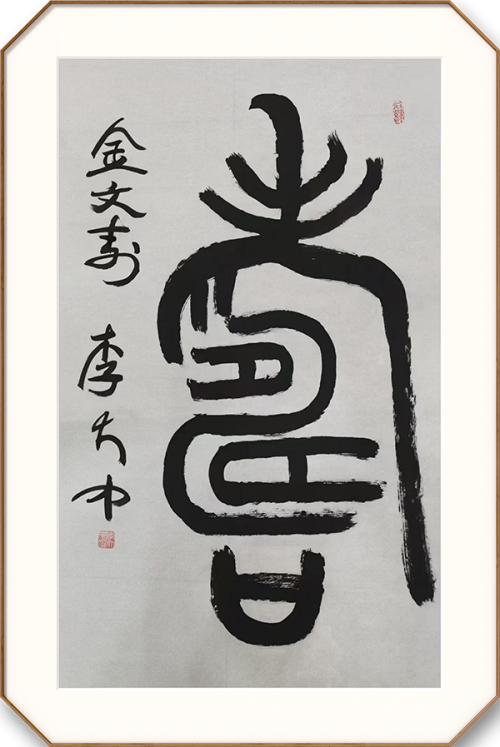 壽
金文寿 李大中